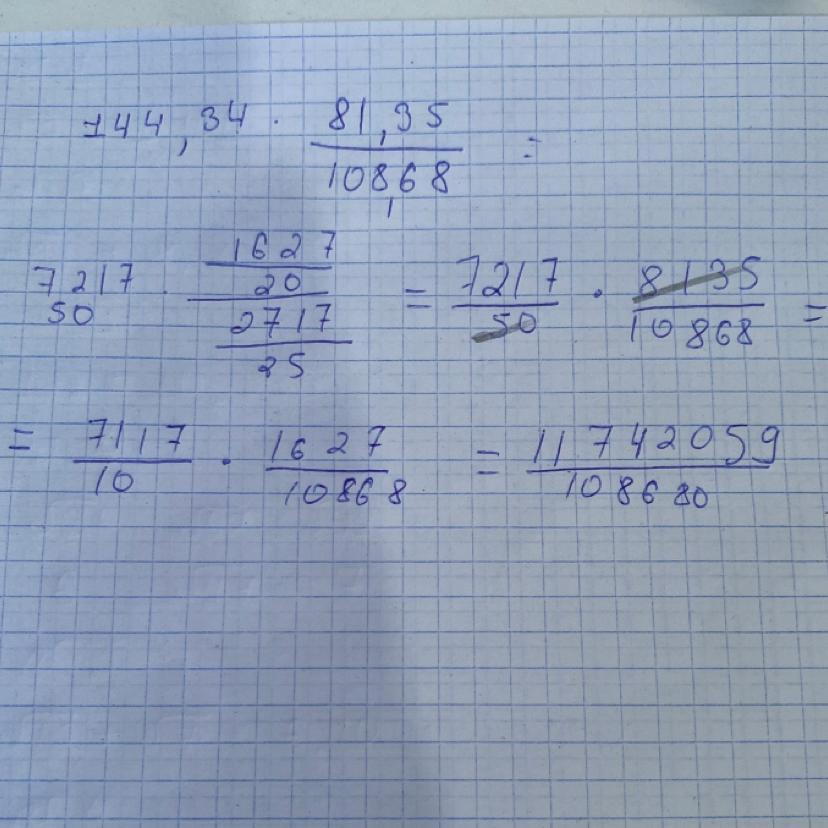 144,34 · 81,35/108,68 =
7217/50 · (1627/20)/(2717/25) = 7217/50 · 8135/10868 =
= 7117/10 · 1627/10868 = 11742059/108680